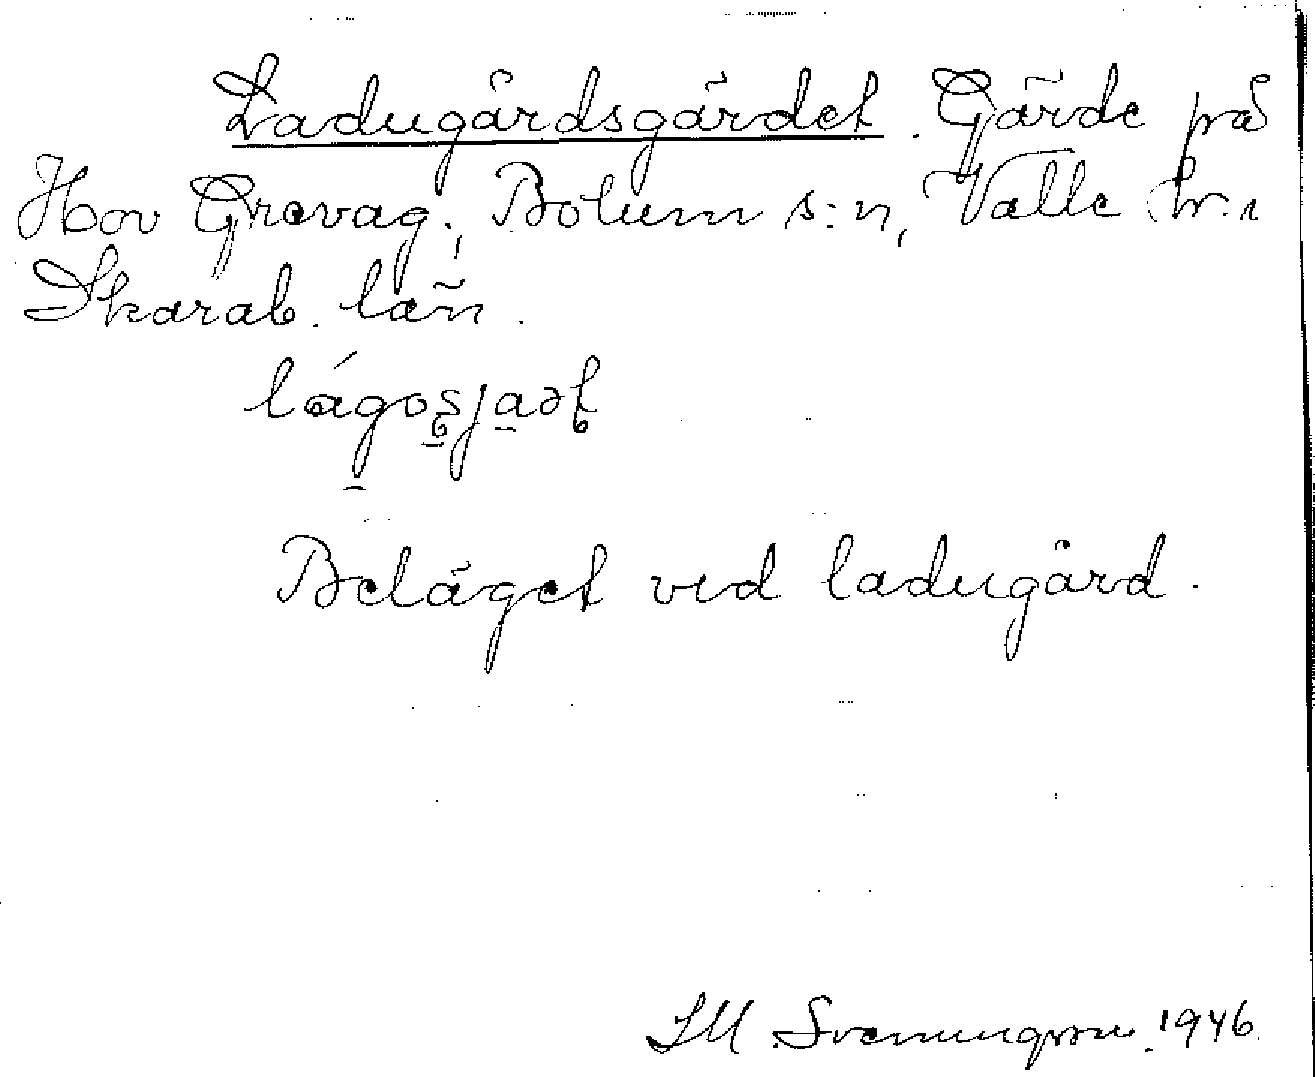 Ladugårdsgärdet. Gärde på
Hov Grevag., Bolum s:n, Valle hr.
Skarab. län.
Beläget ved ladugård.
SM Svenungsson 1946